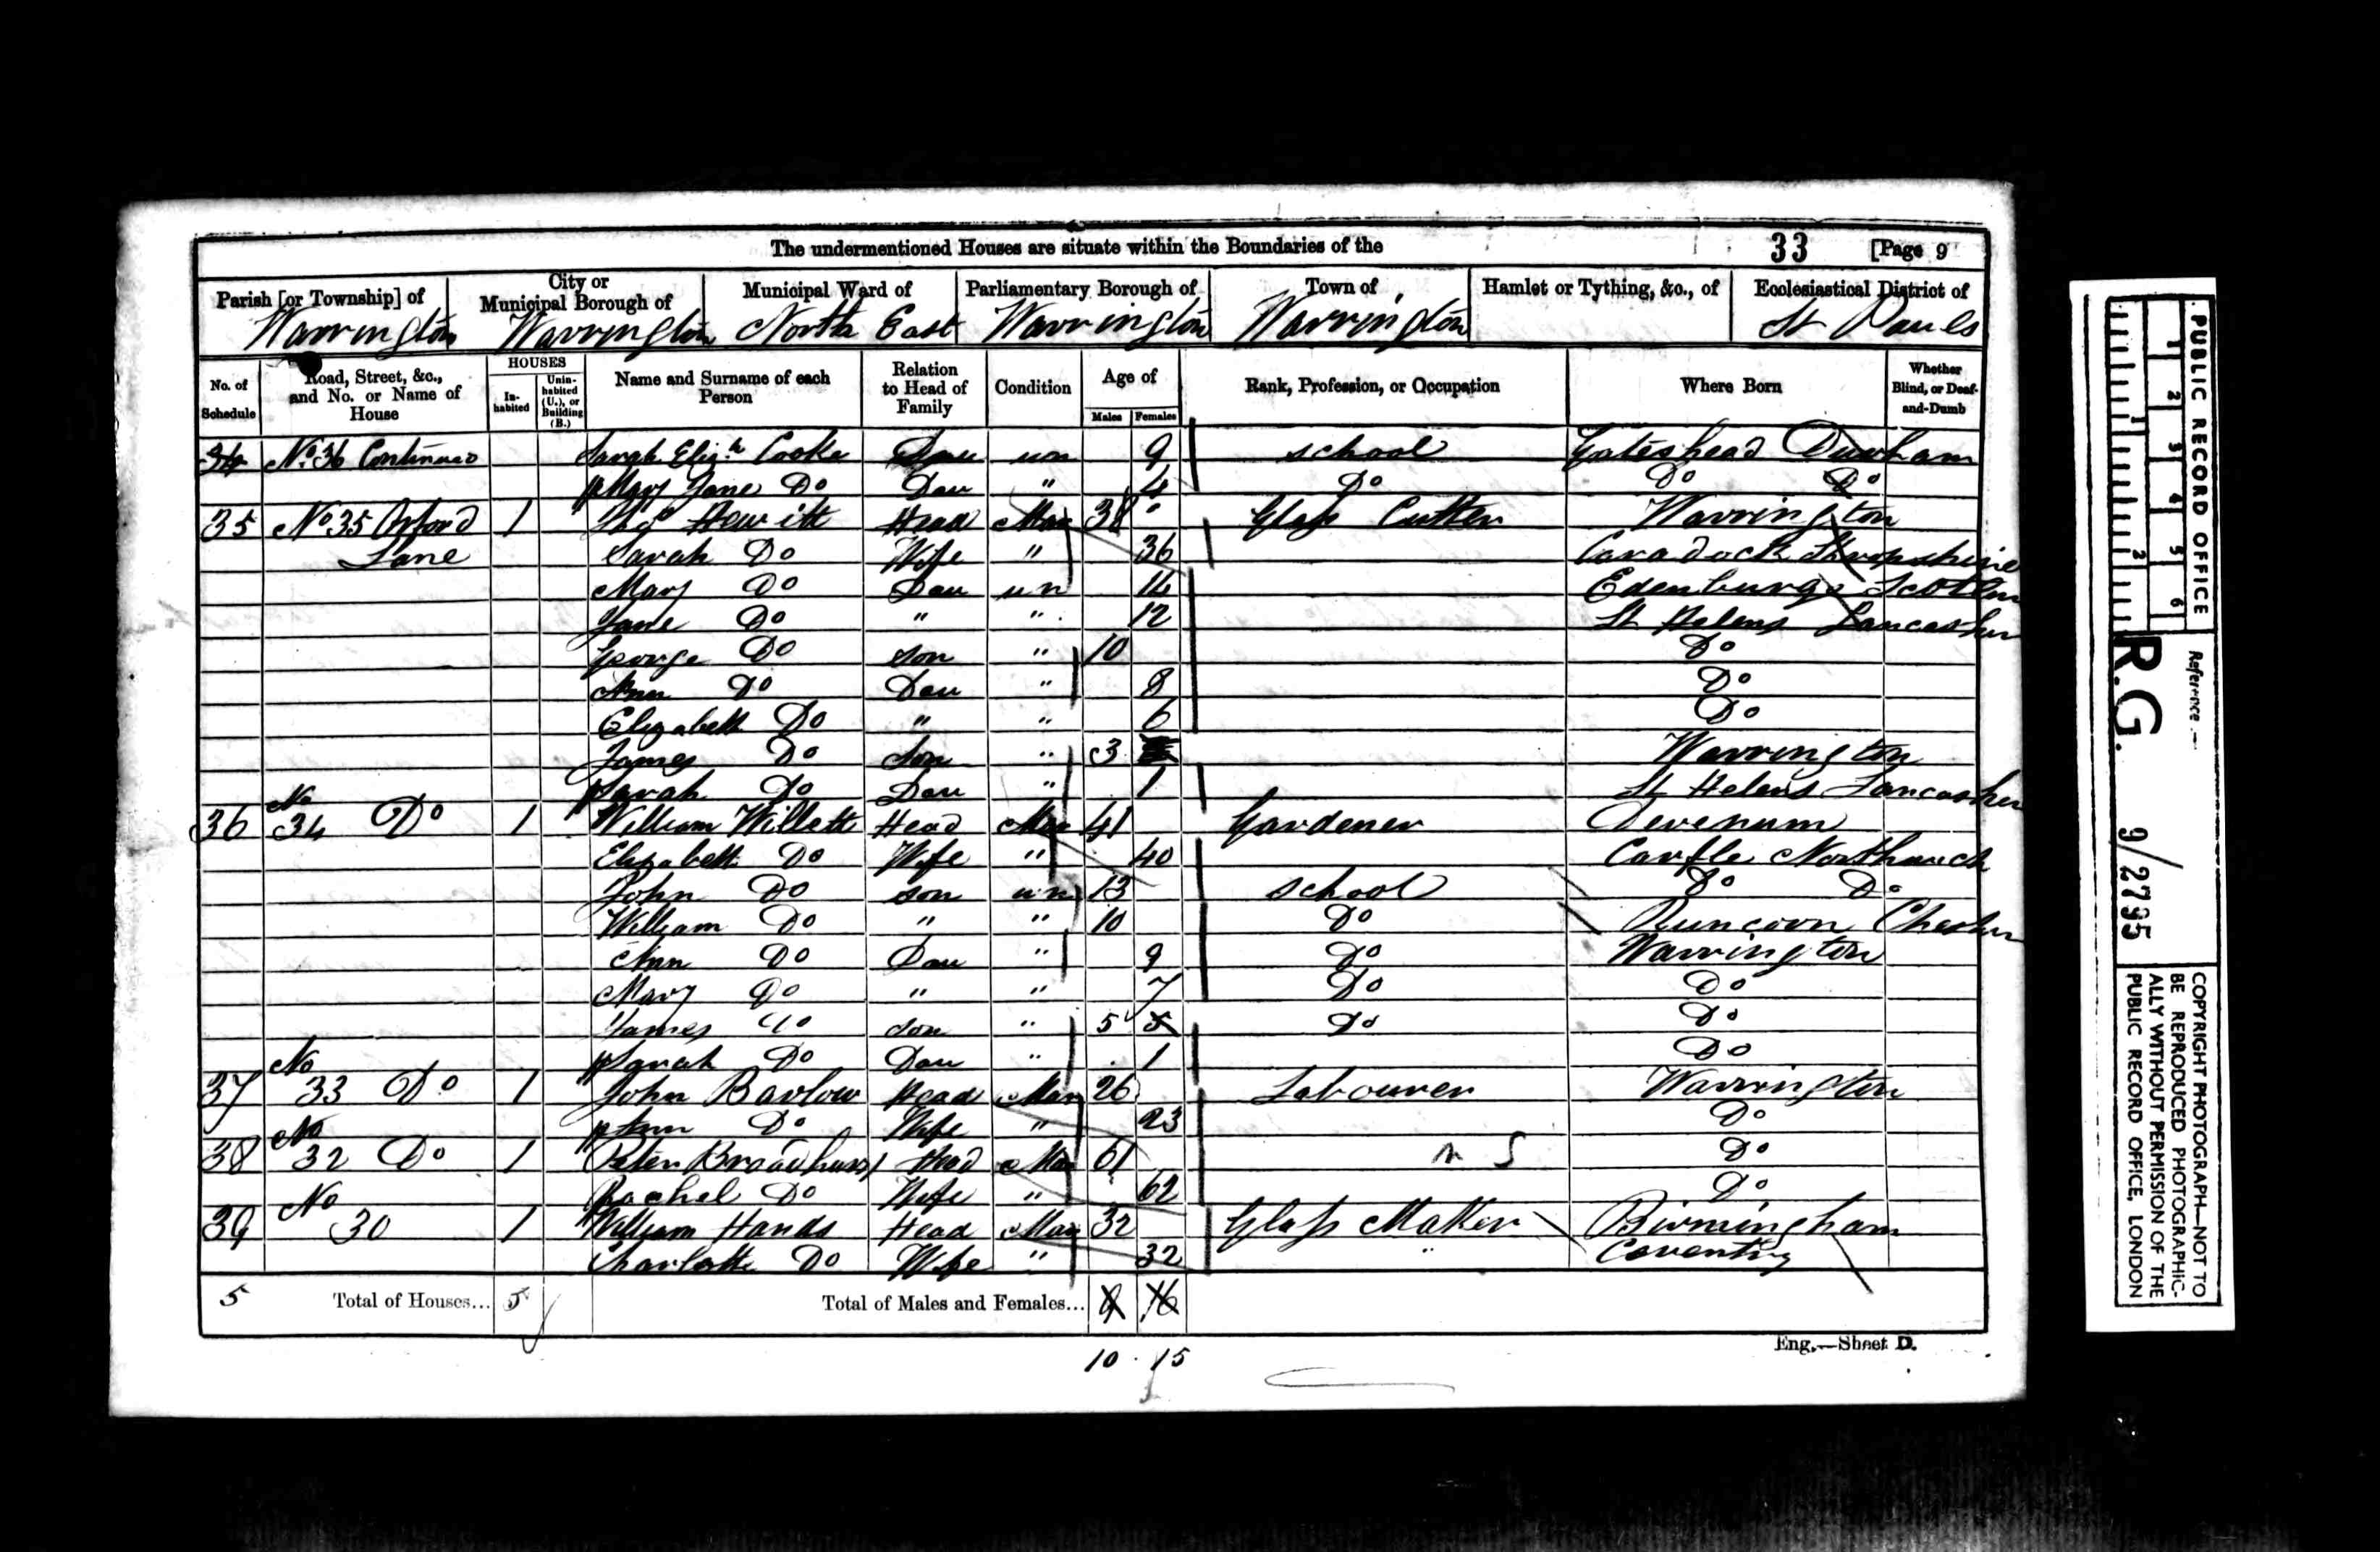 The undermentioned Houses are situate within the Boundaries of the 33 [Page 9
Parish [or Township] of City or Municipal Borough of Municipal Ward of Parliamentary Borough of Town of Hamlet or Tything, &c., of Ecclesiastical District of
Warrington Warrington North East Warrington Warrington St Pauls
No. of Schedule Road, Street, &c., and No. or Name of House HOUSES In-habited Unin-habited (U.), or Building (B.) Name and Surname of each Person Relation to Head of Family Condition Age of Males Females Rank, Profession, or Occupation Where Born Whether Blind, or Deaf-and-Dumb
34 No. 36 Continued Sarah Elizh Cooke Dau un 9 school Gateshead Durham
Mary Jane Do Dau " 4 Do Do Do
35 No 35 Orford 1 Hewitt Head Mar 38 Glass Cutter Warrington
Lane Sarah Do Wife " 36 Caradock Shropshire
Mary Do Dau un 14 Edenburgh Scotlan
Jane Do " " 12 St Helens Lancasher
George Do son " 10 Do
Ann Do Dau " 8 Do
Elizabeth Do " " 6 Do
James Do Son " 3 Warrington
Sarah Do Dau " 1 St Helens Lancasher
36 No 34 Do 1 William Willett Head Mar 41 Gardener
Elizabeth Do Wife " 40
John Do son un 13 school Do Do
William Do " " 10 Do Runcorn Chesher
Ann Do Dau " 9 Do Warrington
Mary Do " " 7 Do Do
James Do son " 5 5 Do Do
Sarah Do Dau " 1 Do
37 No 33 Do 1 John Barlow Head Mar 26 Labourer Warrington
Ann Do Wife " 23 Do
38 No 32 Do 1 Peter Broadhurst Head Mar 61 Do
Rachel Do Wife " 62 Do
39 No 30 1 William Hands Head Mar 32 Glass Maker Birmingham
Charlotte Do Wife " 32 " Coventry
5 Total of Houses... 5 Total of Males and Females... 9 16
10 15
Eng.—Sheet D.
PUBLIC RECORD OFFICE
1 2 3 4 5 6
1 2
Reference:-
R.G. 9/2795
COPYRIGHT PHOTOGRAPH—NOT TO
BE REPRODUCED PHOTOGRAPHIC-
ALLY WITHOUT PERMISSION OF THE
PUBLIC RECORD OFFICE, LONDON